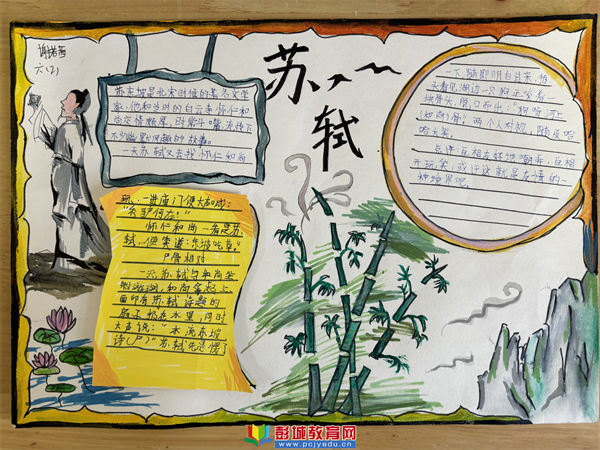 谢诺茜
六(2)
苏轼
苏东坡是北宋时候的著名文学
家,他和当时的白云寺怀仁和
尚友情颇深,时常斗嘴,流传下
不少幽默风趣的故事。
一天苏轼又去找怀仁和尚
玩,一进庙门便大叫:
"秃驴何在!"
怀仁和尚一看是苏
轼,便笑道:东坡吃草。"
尸骨相对
一次苏轼与和尚坐
船游湖,和尚拿起上
面印有苏轼诗题的
扇子扔在水里,同时
大声说:"水流东坡
诗(尸)"苏轼先是愣了
一下,随即明白过来,抬
头看见湖边一只狗正在着
啃骨头,脱口而出:"狗啃河上
(和尚)骨。两个人对视,随及哈
哈大笑。
点评:互相友好地嘲弄,互相
开玩笑,或许这就是友情的一
种境界吧。
彭城教育网
www.pcjyedu.cn